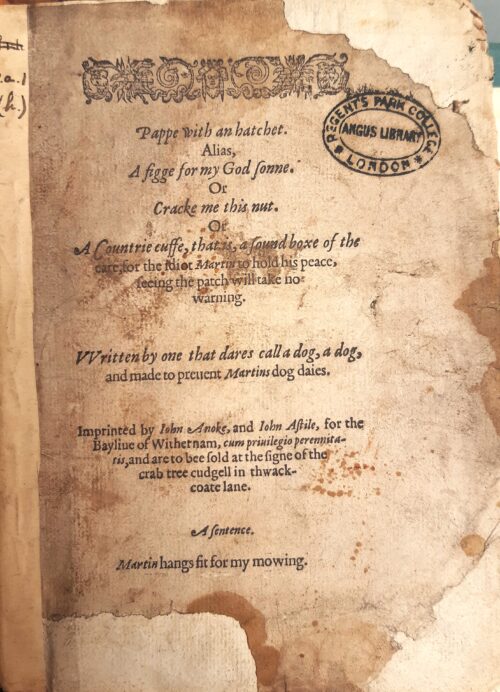 a.1
(k.)
REGENT'S PARK COLLEGE
ANGUS LIBRARY
LONDON
Pappe with an hatchet.
Alias,
A figge for my God ſonne.
Or
Cracke me this nut.
Or
A Countrie cuffe, that is, a ſound boxe of the
eare, for the idiot Martin to hold his peace,
ſeeing the patch will take no
warning.
VVritten by one that dares call a dog, a dog,
and made to preuent Martins dog daies.
Imprinted by Iohn Anoke, and Iohn Aſtile, for the
Bayliue of Withernam, cum priuilegio perennita-
tis, and are to bee ſold at the ſigne of the
crab tree cudgell in thwack-
coate lane.
A ſentence.
Martin hangs fit for my mowing.